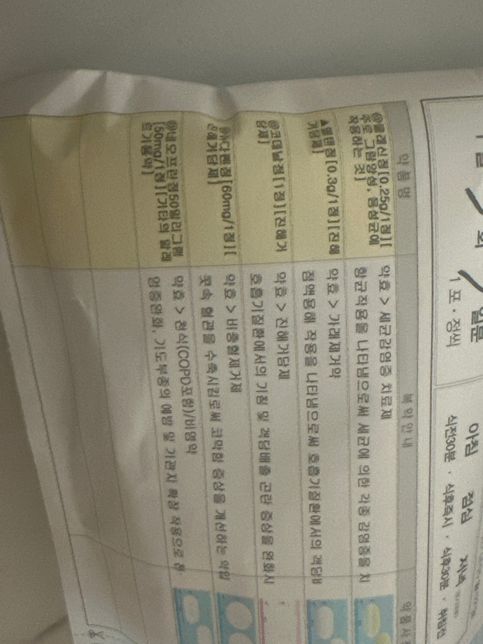 약품명
복약안내
약품사
포·정씩
아침 점심 저녁
식전30분 · 식후즉시 · 식후30분 · 취침전
[0.25g/1정][
주로 그람양성, 음성균에
작용하는 것]
약효 > 세균감염증 치료제
항균작용을 나타냄으로써 세균에 의한 각종 감염증을 치
[0.3g/1정][진해
거담제]
약효 > 가래제거약
점액용해 작용을 나타냄으로써 호흡기질환에서의 객담배
[1정][진해거
담제]
약효 > 진해거담제
호흡기질환에서의 기침 및 객담배출 곤란 증상을 완화시
[60mg/1정][
진해거담제]
약효 > 비충혈제거제
콧속 혈관을 수축시킴으로써 코막힘 증상을 개선하는 약입
50밀리그램
[50mg/1정][기타의 알레
르기용약]
약효 > 천식(COPD포함)/비염약
염증완화, 기도부종의 예방 및 기관지 확장 작용으로 천